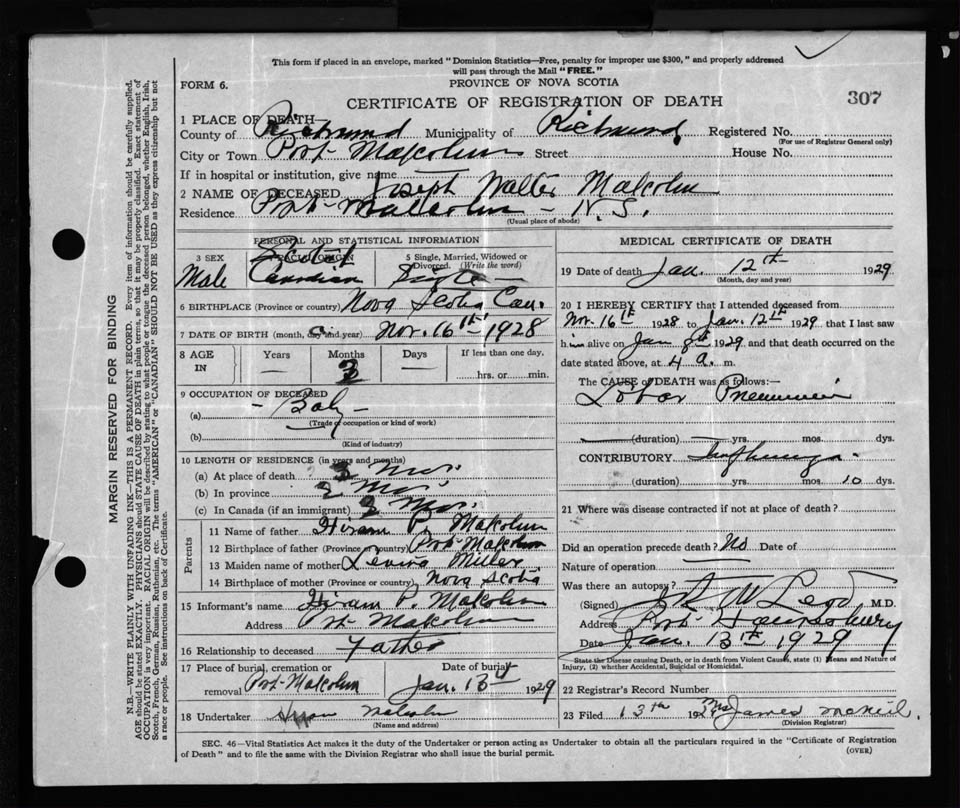 This form if placed in an envelope, marked "Dominion Statistics—Free, penalty for improper use $300," and properly addressed
will pass through the Mail "FREE."
FORM 6.
PROVINCE OF NOVA SCOTIA
CERTIFICATE OF REGISTRATION OF DEATH
307
1 PLACE OF DEATH—
County of Richmond Municipality of Richmond Registered No.
(For use of Registrar General only)
City or Town Port Malcolm Street House No.
If in hospital or institution, give name
2 NAME OF DECEASED Joseph Walter Malcolm
Residence Port Malcolm - N.S.
(Usual place of abode)
PERSONAL AND STATISTICAL INFORMATION
3 SEX Male
RACIAL ORIGIN Scotch Canadian
5 Single, Married, Widowed or Divorced. (Write the word) Single
6 BIRTHPLACE (Province or country) Nova Scotia Can.
7 DATE OF BIRTH (month, day and year) Nov. 16th 1928
8 AGE IN Years — Months Days — If less than one day, hrs. or min.
9 OCCUPATION OF DECEASED
(a) - Baby -
(Trade, occupation or kind of work)
(b)
(Kind of industry)
10 LENGTH OF RESIDENCE (in years and months)
(a) At place of death Mos.
(b) In province 2 Mos.
(c) In Canada (if an immigrant) 2 Mos.
Parents
11 Name of father Hiram P. Malcolm
12 Birthplace of father (Province or country) Port Malcolm
13 Maiden name of mother Miller
14 Birthplace of mother (Province or country) Nova Scotia
15 Informant's name Hiram P. Malcolm
Address Port Malcolm
16 Relationship to deceased Father
17 Place of burial, cremation or removal Port Malcolm
Date of burial Jan. 13th 1929
18 Undertaker Malcolm
(Name and address)
MEDICAL CERTIFICATE OF DEATH
19 Date of death Jan. 12th 1929
(Month, day and year)
20 I HEREBY CERTIFY that I attended deceased from
Nov. 16th 1928 to Jan. 12th 1929, that I last saw
him alive on Jan 8th 1929 and that death occurred on the
date stated above, at 4 a. m.
The CAUSE of DEATH was as follows:—
Lobar Pneumonia
(duration) yrs. mos. dys.
CONTRIBUTORY Influenza
(duration) yrs. mos. 10 dys.
21 Where was disease contracted if not at place of death?
Did an operation precede death? No Date of
Nature of operation
Was there an autopsy?
(Signed) McLeod M.D.
Address Port Hawkesbury
Date Jan. 13th 1929
State the Disease causing Death, or in death from Violent Causes, state (1) Means and Nature of
Injury, (2) whether Accidental, Suicidal or Homicidal.
22 Registrar's Record Number
23 Filed 13th 192 Mrs James McNeil
(Division Registrar)
SEC. 46—Vital Statistics Act makes it the duty of the Undertaker or person acting as Undertaker to obtain all the particulars required in the "Certificate of Registration
of Death" and to file the same with the Division Registrar who shall issue the burial permit.
(OVER)
MARGIN RESERVED FOR BINDING
N.B.—WRITE PLAINLY WITH UNFADING INK—THIS IS A PERMANENT RECORD. Every item of information should be carefully supplied.
AGE should be stated EXACTLY. PHYSICIANS should STATE CAUSE OF DEATH in plain terms, so that it may be properly classified. Exact statement of
OCCUPATION is very important. RACIAL ORIGIN will be described by stating to what people or tongue the deceased person belonged, whether English, Irish,
Scotch, French, German, Russian, Ruthenian, etc. The terms "AMERICAN" or "CANADIAN" SHOULD NOT BE USED as they express citizenship but not
a race or people. See instructions on back of Certificate.